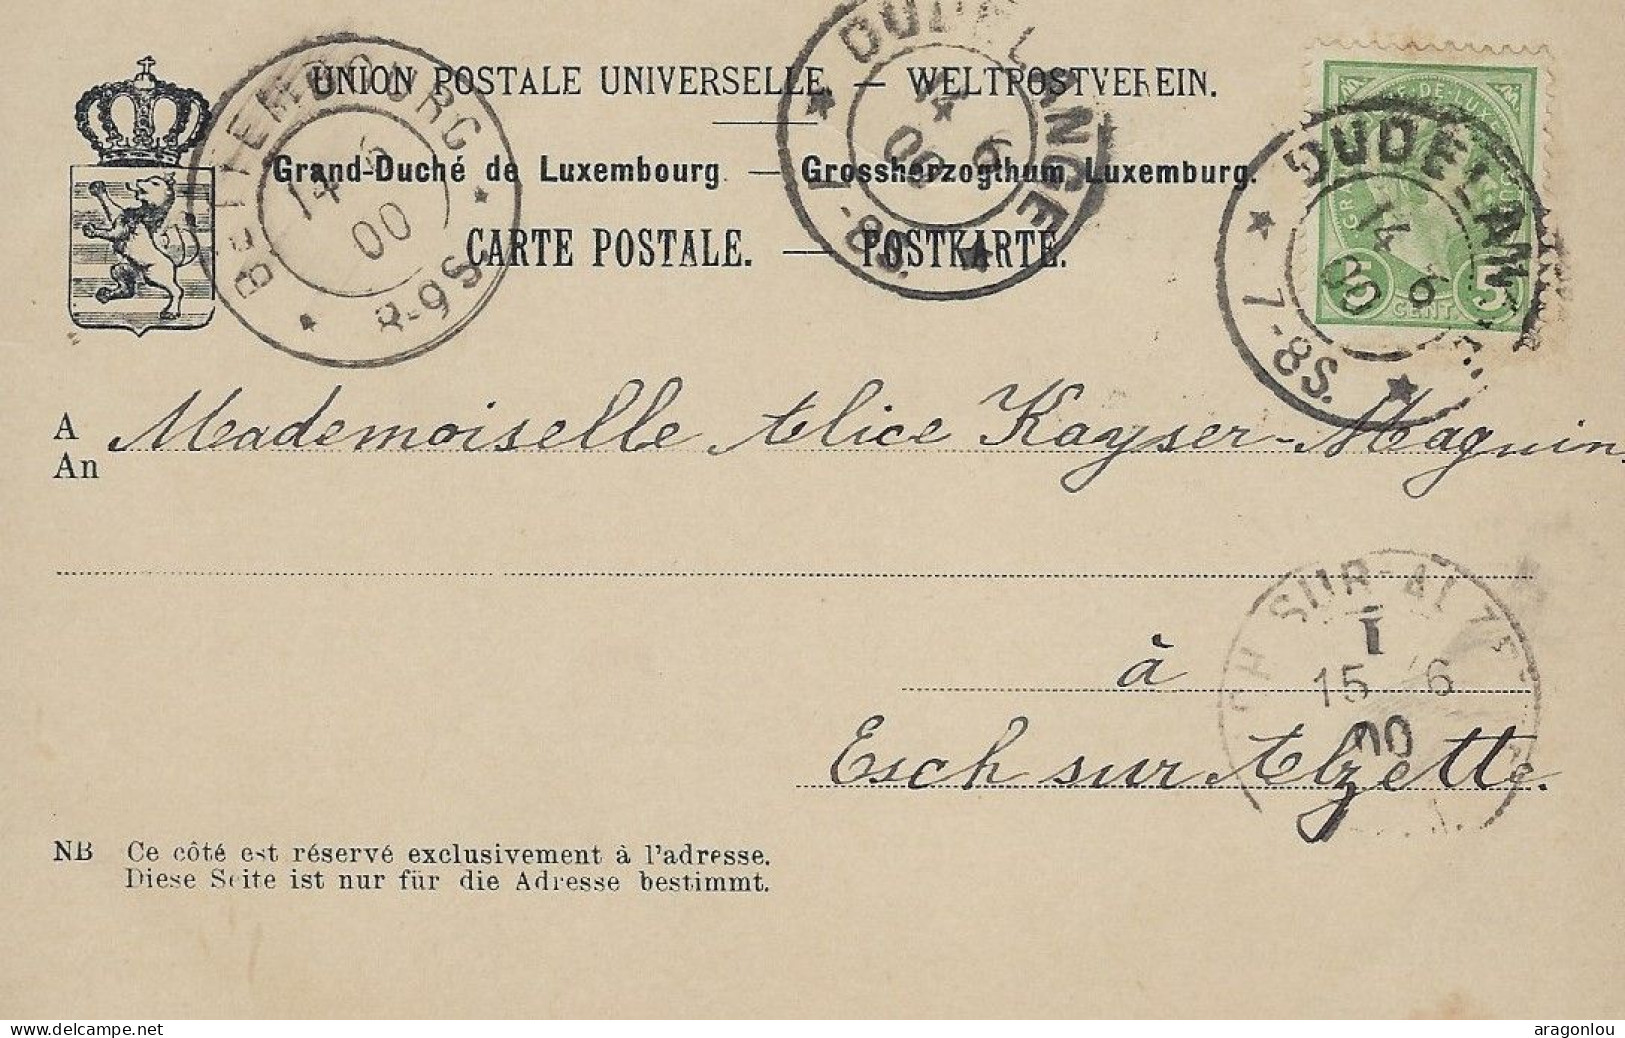 UNION POSTALE UNIVERSELLE. — WELTPOSTVEREIN.
Grand-Duché de Luxembourg. — Grossherzogthum Luxemburg.
CARTE POSTALE. — POSTKARTE.
BETTEMBOURG
14 6
00
8-9S
DUDELANGE
14 6
00
7-8S.
DUDELANGE
14 6
00
7-8S.
5 5
CENT.
A Mademoiselle Alice Kayser-Magnin
An
SUR-ALZE
I
15 6
00
à
Esch sur Alzette.
NB Ce côté est réservé exclusivement à l'adresse.
Diese Seite ist nur für die Adresse bestimmt.
www.delcampe.net
aragonlou